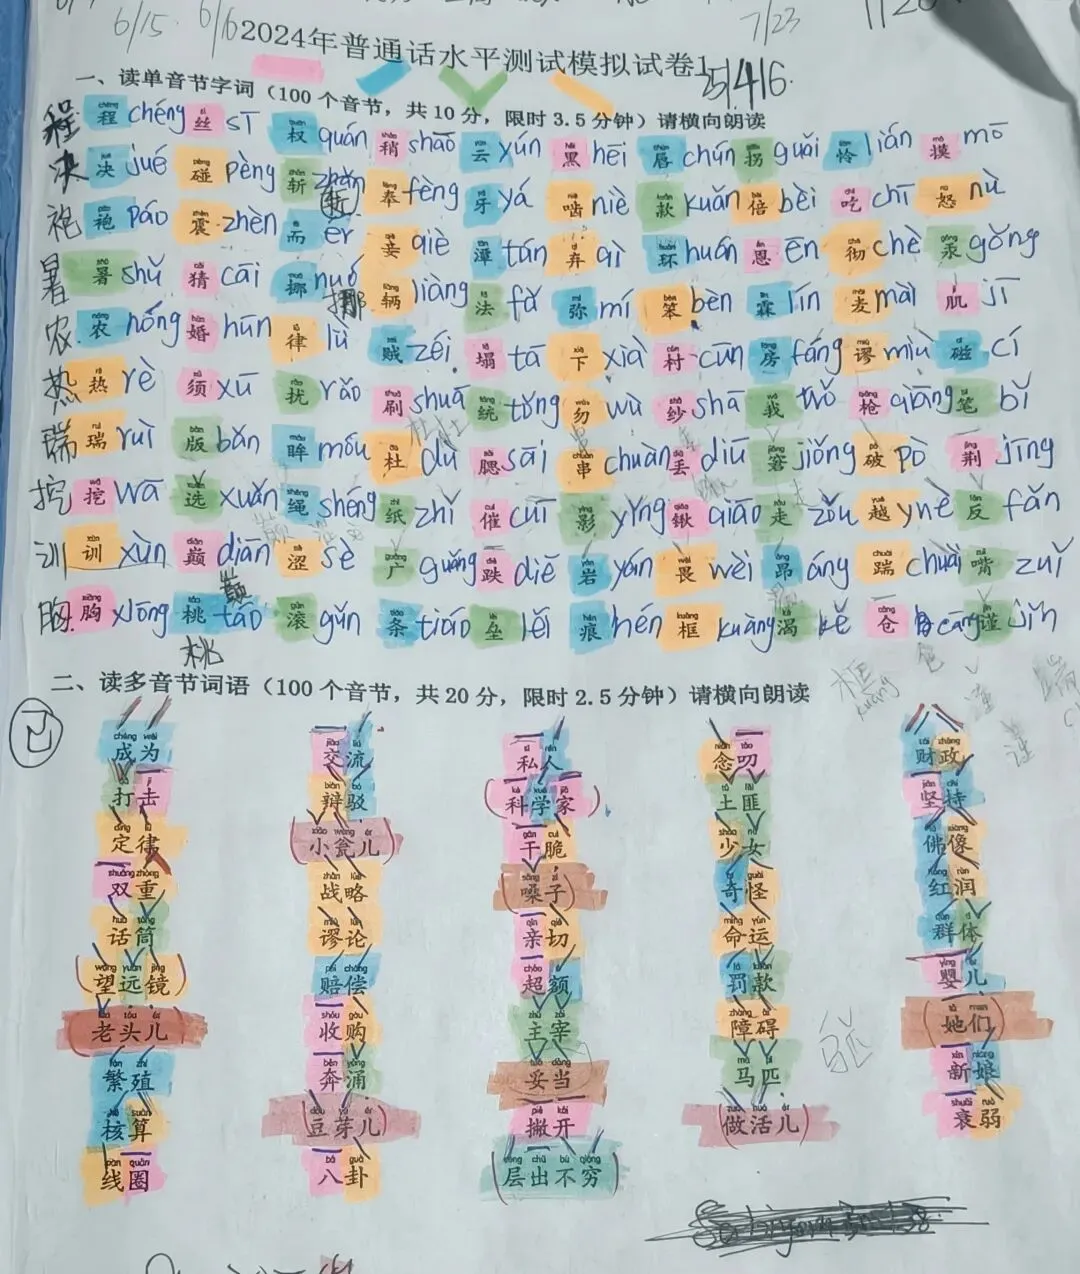 6/15 6/16 7/23
2024年普通话水平测试模拟试卷1
5/4/6.
一、读单音节字词（100 个音节，共 10 分，限时 3.5 分钟）请横向朗读
程 程 chéng 丝 sī 权 quán 稍 shāo 云 yún 黑 hēi 唇 chún 拐 guǎi 怜 lián 摸 mō
决 决 jué 碰 pèng 斩 zhǎn 奉 fèng 牙 yá 啮 niè 款 kuǎn 倍 bèi 吃 chī 怒 nù
袍 袍 páo 震 zhèn 而 ér 妾 qiè 潭 tán 弃 qì 环 huán 恩 ēn 彻 chè 汞 gǒng
暑 暑 shǔ 猜 cāi 挪 nuó 挪 辆 liàng 法 fǎ 弥 mí 笨 bèn 霖 lín 麦 mài 肌 jī
农 农 nóng 婚 hūn 律 lǜ 贼 zéi 塌 tā 下 xià 村 cūn 房 fáng 谬 miù 磁 cí
热 热 rè 须 xū 扰 rǎo 刷 shuā 统 tǒng 勿 wù 纱 shā 我 wǒ 枪 qiāng 笔 bǐ
瑞 瑞 ruì 版 bǎn 眸 móu 杜 dù 腮 sāi 串 chuàn 丢 diū 窘 jiǒng 破 pò 荆 jīng
挖 挖 wā 选 xuǎn 绳 shéng 纸 zhǐ 催 cuī 影 yǐng 锹 qiāo 走 zǒu 越 yuè 反 fǎn
训 训 xùn 巅 diān 涩 sè 广 guǎng 跌 diē 岩 yán 畏 wèi 昂 áng 踹 chuài 嘴 zuǐ
胸 胸 xiōng 桃 táo 滚 gǔn 条 tiáo 垒 lěi 痕 hén 框 kuàng 渴 kě 仓 cāng 谨 jǐn
桃
二、读多音节词语（100 个音节，共 20 分，限时 2.5 分钟）请横向朗读
成为 交流 私人 念叨 财政
打击 辩驳 （科学家） 土匪 坚持
定律 （小瓮儿） 干脆 少女 佛像
双重 战略 （嗓子） 奇怪 红润
话筒 谬论 亲切 命运 群体
（望远镜） 赔偿 超额 罚款 婴儿
（老头儿） 收购 主宰 障碍 （她们）
繁殖 奔涌 妥当 马匹 新娘
核算 （豆芽儿） 撇开 （做活儿） 衰弱
线圈 八卦 （层出不穷）